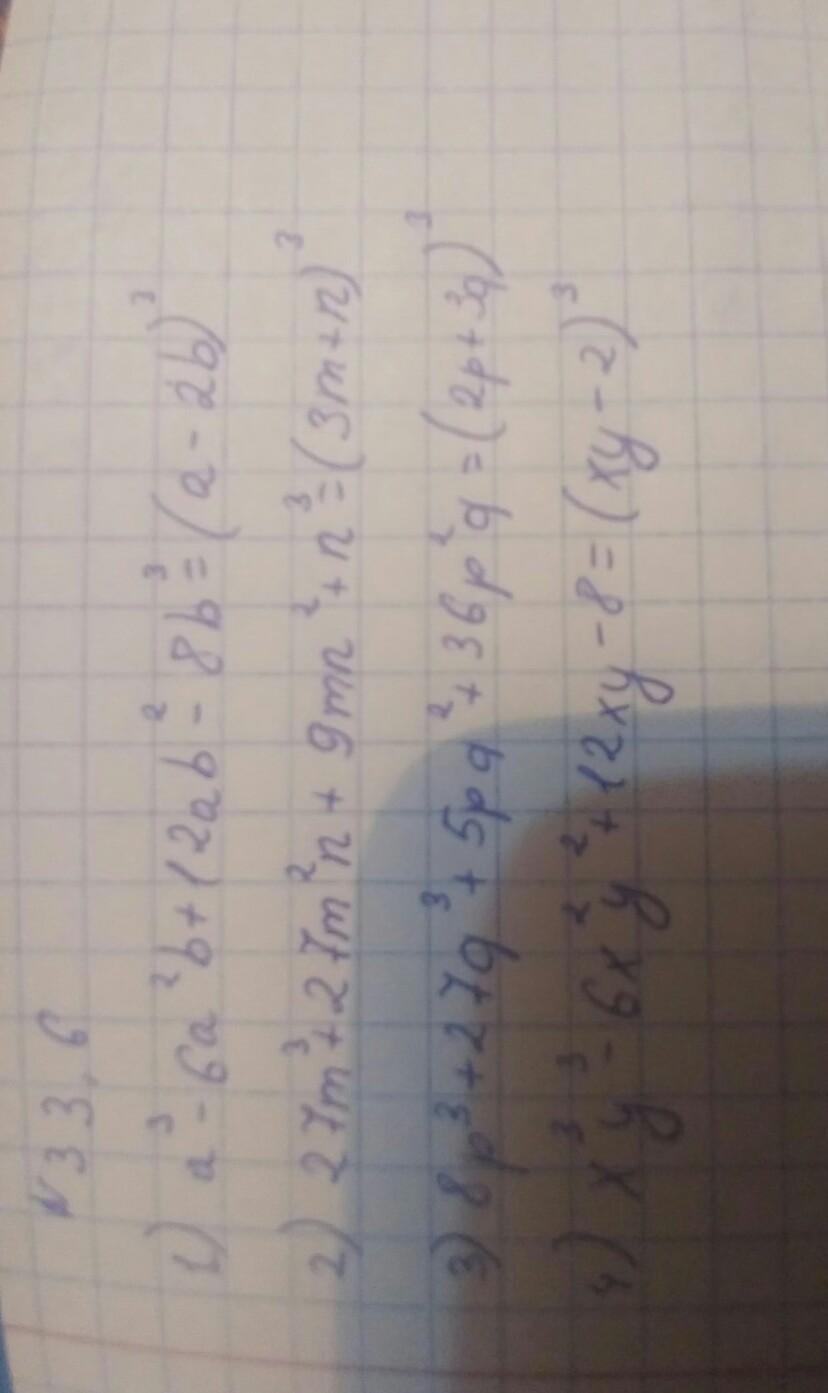 N 33.6
1) a³ - 6a²b + 12ab² - 8b³ = (a - 2b)³
2) 27m³ + 27m²n + 9mn² + n³ = (3m + n)³
3) 8p³ + 27q³ + 5pq² + 36p²q = (2p + 3q)³
4) x³y³ - 6x²y² + 12xy - 8 = (xy - 2)³